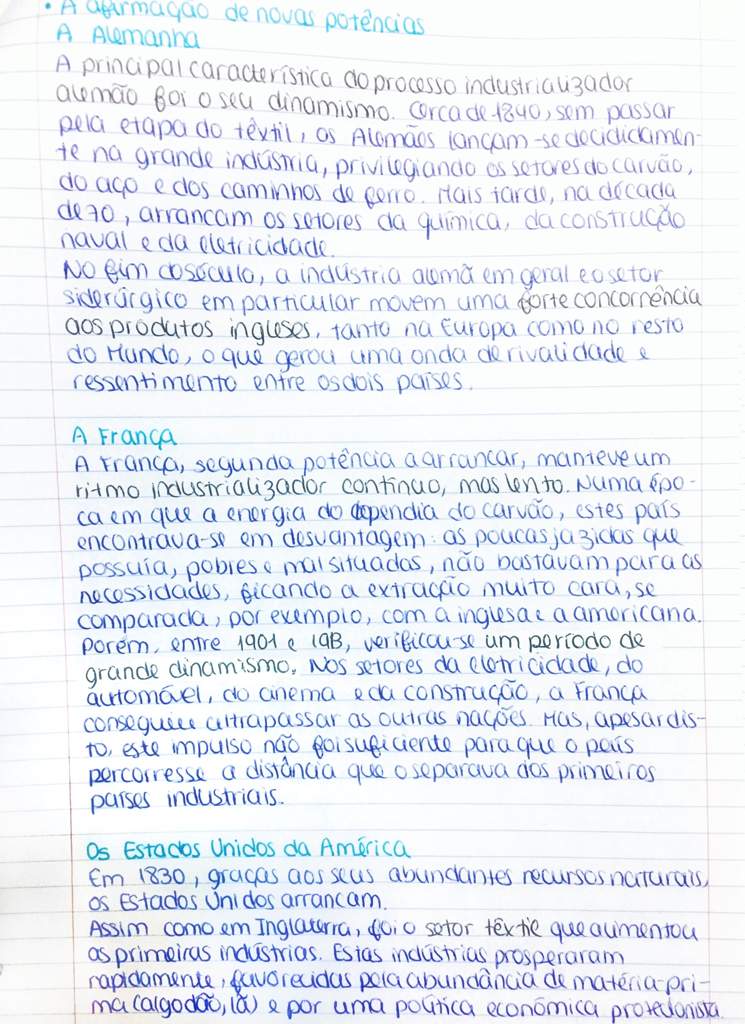 • A afirmação de novas potências
A Alemanha
A principal característica do processo industrializador
alemão foi o seu dinamismo. Cerca de 1840, sem passar
pela etapa do têxtil, os Alemães lançam-se decididamen-
te na grande indústria, privilegiando os setores do carvão,
do aço e dos caminhos de ferro. Mais tarde, na década
de 70, arrancam os setores da química, da construção
naval e da eletricidade.
No fim do século, a indústria alemã em geral e o setor
siderúrgico em particular movem uma forte concorrência
aos produtos ingleses, tanto na Europa como no resto
do Mundo, o que gerou uma onda de rivalidade e
ressentimento entre os dois países.
A França
A França, segunda potência a arrancar, manteve um
ritmo industrializador contínuo, mas lento. Numa épo-
ca em que a energia do dependia do carvão, estes país
encontrava-se em desvantagem: as poucas jazidas que
possuía, pobres e mal situadas, não bastavam para as
necessidades, ficando a extracção muito cara, se
comparada, por exemplo, com a inglesa e a americana.
Porém, entre 1901 e 1913, verificou-se um período de
grande dinamismo. Nos setores da eletricidade, do
automóvel, do cinema e da construção, a França
consegue ultrapassar as outras nações. Mas, apesar dis-
to, este impulso não foi suficiente para que o país
percorresse a distância que o separava dos primeiros
países industriais.
Os Estados Unidos da América
Em 1830, graças aos seus abundantes recursos naturais,
os Estados Unidos arrancam.
Assim como em Inglaterra, foi o setor têxtil que aumentou
as primeiras indústrias. Estas indústrias prosperaram
rapidamente, favorecidas pela abundância de matéria-pri-
ma (algodão, lã) e por uma política económica protecionista.